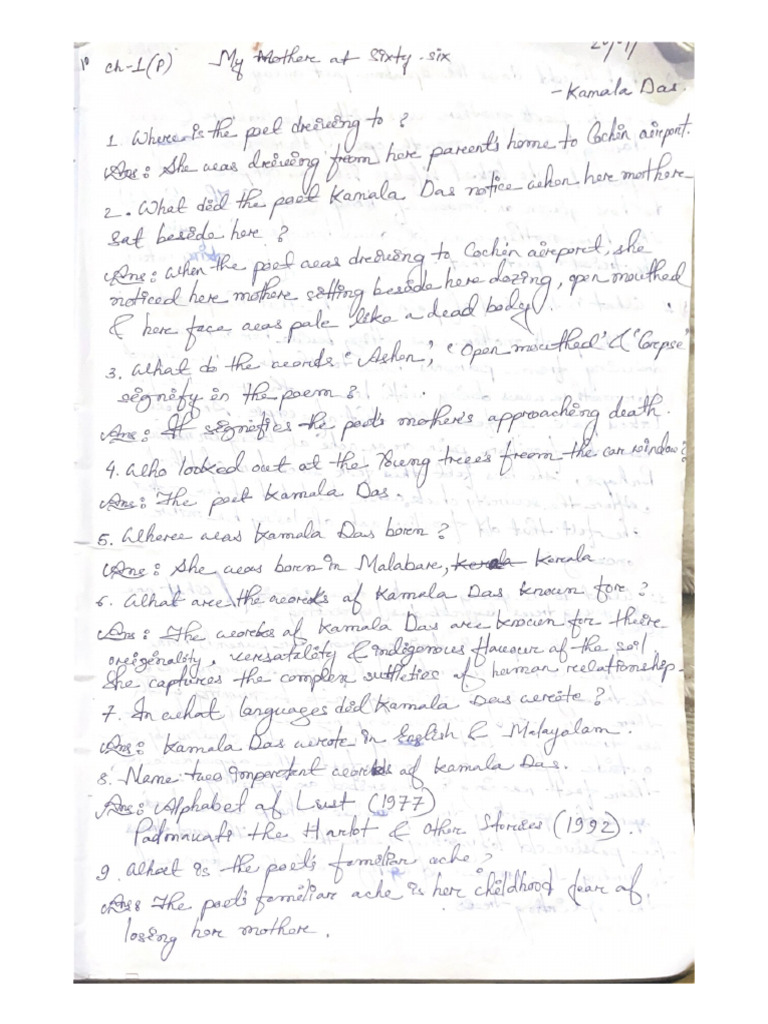 ch-1(P) My Mother at Sixty-six
-Kamala Das.
1. Where is the poet driving to?
Ans: She was driving from her parents home to Cochin airport.
2. What did the poet Kamala Das notice when her mother
sat beside her?
Ans: When the poet was driving to Cochin airport, she
noticed her mother sitting beside her dozing, open mouthed
& her face was pale like a dead body.
3. What do the words 'Ashen', 'Open mouthed' & 'Corpse'
signify in the poem?
Ans: It signifies the poet's mother's approaching death.
4. Who looked out at the Young trees from the car window?
Ans: The poet Kamala Das.
5. Where was Kamala Das born?
Ans: She was born in Malabare, Kerala
6. What are the works of Kamala Das known for?
Ans: The works of Kamala Das are known for their
originality, versatility & indigonous flavour of the soil.
She captures the complex suttleties of human relationship.
7. In what languages did Kamala Das write?
Ans: Kamala Das wrote in English & Malayalam.
8. Name two Important works of Kamala Das.
Ans: Alphabet of Lust (1977)
Padmavati the Harlot & Other Stories (1992).
9. What is the poet's familiar ache?
Ans: The poet's familiar ache is her childhood fear of
losing her mother.